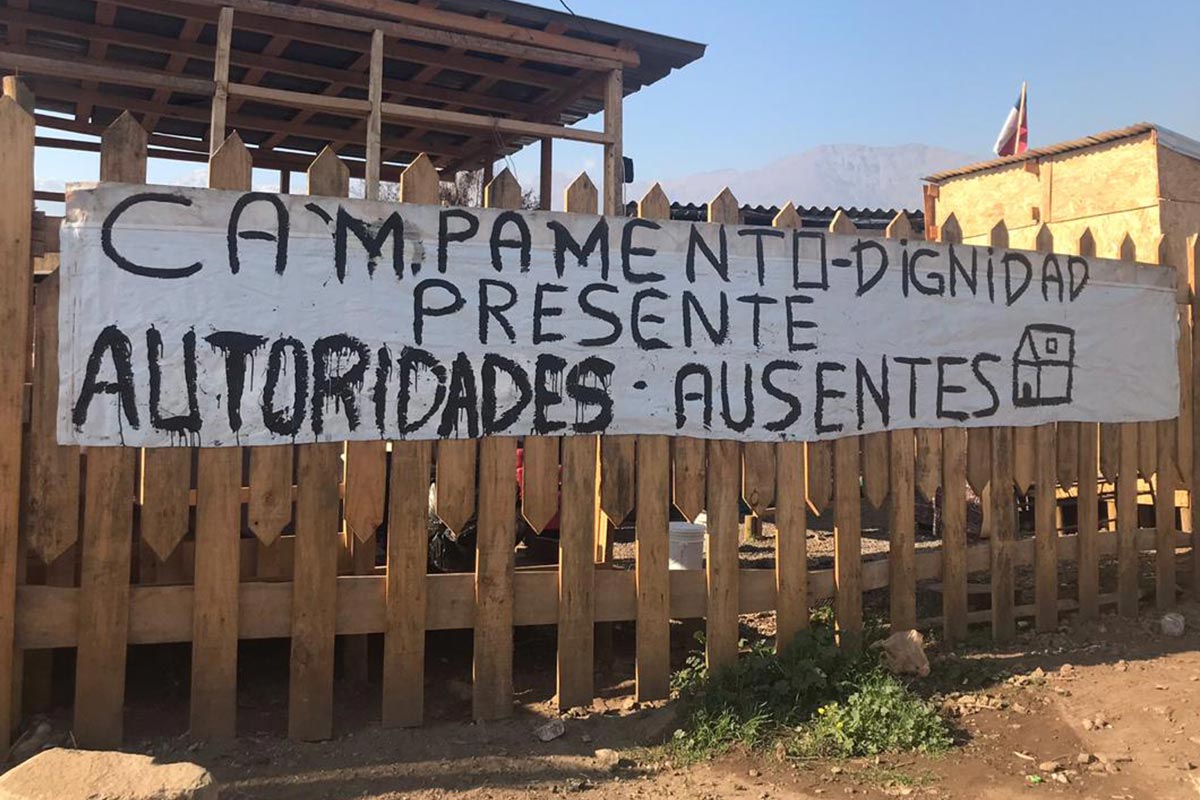 CAMPAMENTO-DiGNiDAD
PRESENTE
AUTORIDADES · AUSENTES